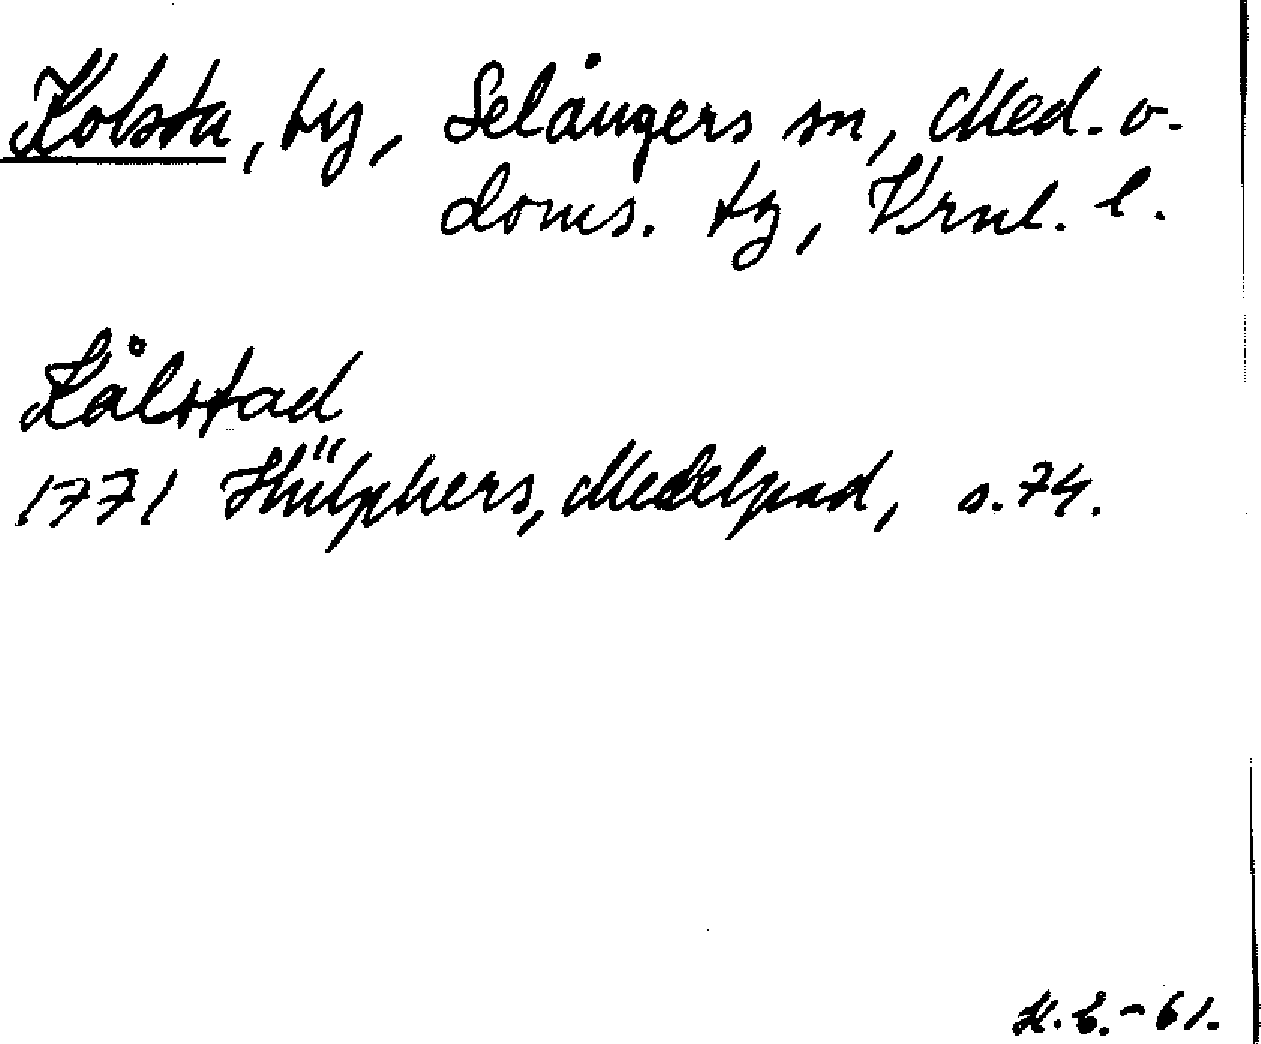 Kolsta, by, Selångers sn, Med. o.
doms. tg, Vrnl. l.
Kålstad
1771 Hülphers, Medelpad, s. 74.
K.C.-61.